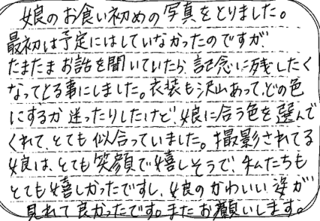 娘のお食い初めの写真をとりました。
最初は予定にはしていなかったのですが
たまたまお話を聞いていたら、記念に残したく
なってとる事にしました。衣装も沢山あって、どの色
にするか迷ったりしたけど、娘に合う色を選んで
くれて、とても似合っていました。撮影されてる
娘は、とても笑顔で嬉しそうで、私たちも
とても嬉しかったですし、娘のかわいい姿が
見れて良かったです。またお願いします。